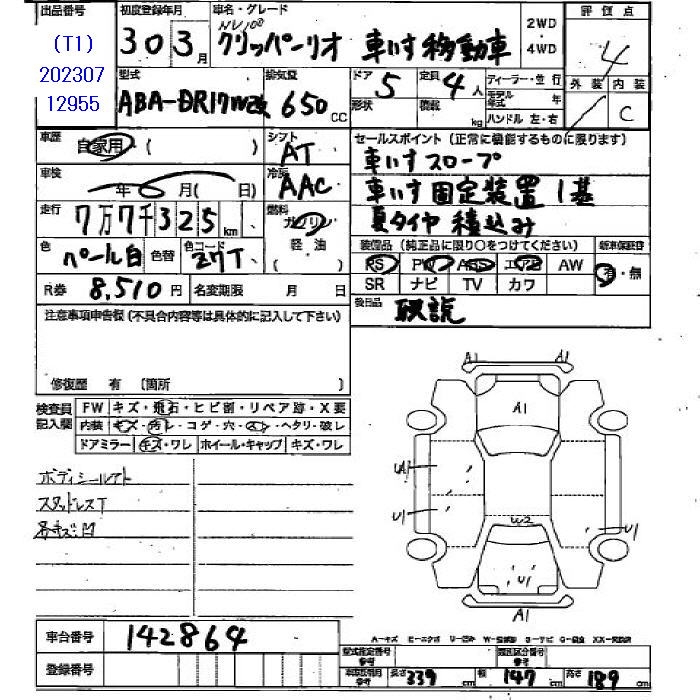 出品番号 初度登録年月 車名・グレード 評価点
(T1) 30 3月 NV100 クリッパーリオ 車いす移動車 2WD ・ 4WD 4
202307 型式 排気量 ドア 5 定員 4人 ディーラー・並行 外装 内装
12955 ABA-DR17W改 650 CC 形状 積載 kg モデル年式 年 C
ハンドル 左・右
車歴 自家用 ( ) シフト AT セールスポイント (正常に機能するものに限ります)
車検 年 月( 日) 冷房 AAC 車いすスロープ
走行 7万7千325km 燃料 ガソリン 軽・油 ( ) 車いす固定装置1基
夏タイヤ積込み
色 パール白 色替 色コード Z7T 装備品 (純正品に限り○をつけてください) 新車保証書
PS PW ABS エアB AW 有・無
R券 8,510円 名変期限 月 日 SR ナビ TV カワ
後日品 取説
注意事項申告欄 (不具合内容等は具体的に記入して下さい)
修復歴 有 〔箇所 〕
検査員記入欄 FW キズ・飛石・ヒビ割・リペア跡・X要
内装 キズ・汚レ・コゲ・穴・ ・ヘタリ・破レ
ドアミラー キズ・ワレ ホイール・キャップ キズ・ワレ
A1 A1
A1
ボディシールアト
スタッドレスT
各キズ凹
U1
U1 W2 U1
U1
A1
車台番号 142864
登録番号
型式指定番号 参考 類別区分番号 参考
長さ 339cm 幅 147cm 高さ 189cm